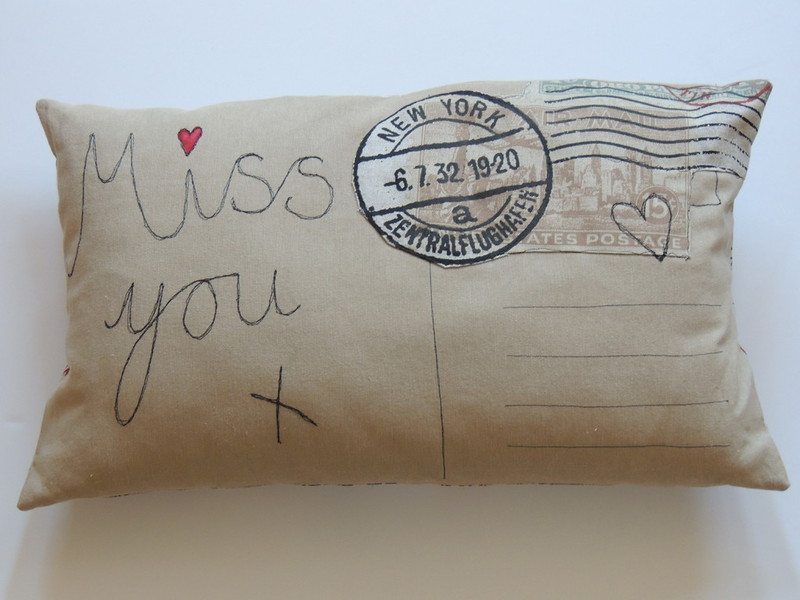 Miss
you
x
NEW YORK
-6.7.32.19-20
a
ZENTRALFLUGHAFEN
MAIL
15¢
ATES POSTAGE